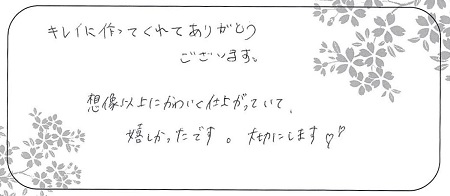 キレイに作ってくれてありがとう
ございます。
想像以上にかわいく仕上がっていて、
嬉しかったです。大切にします♡♡